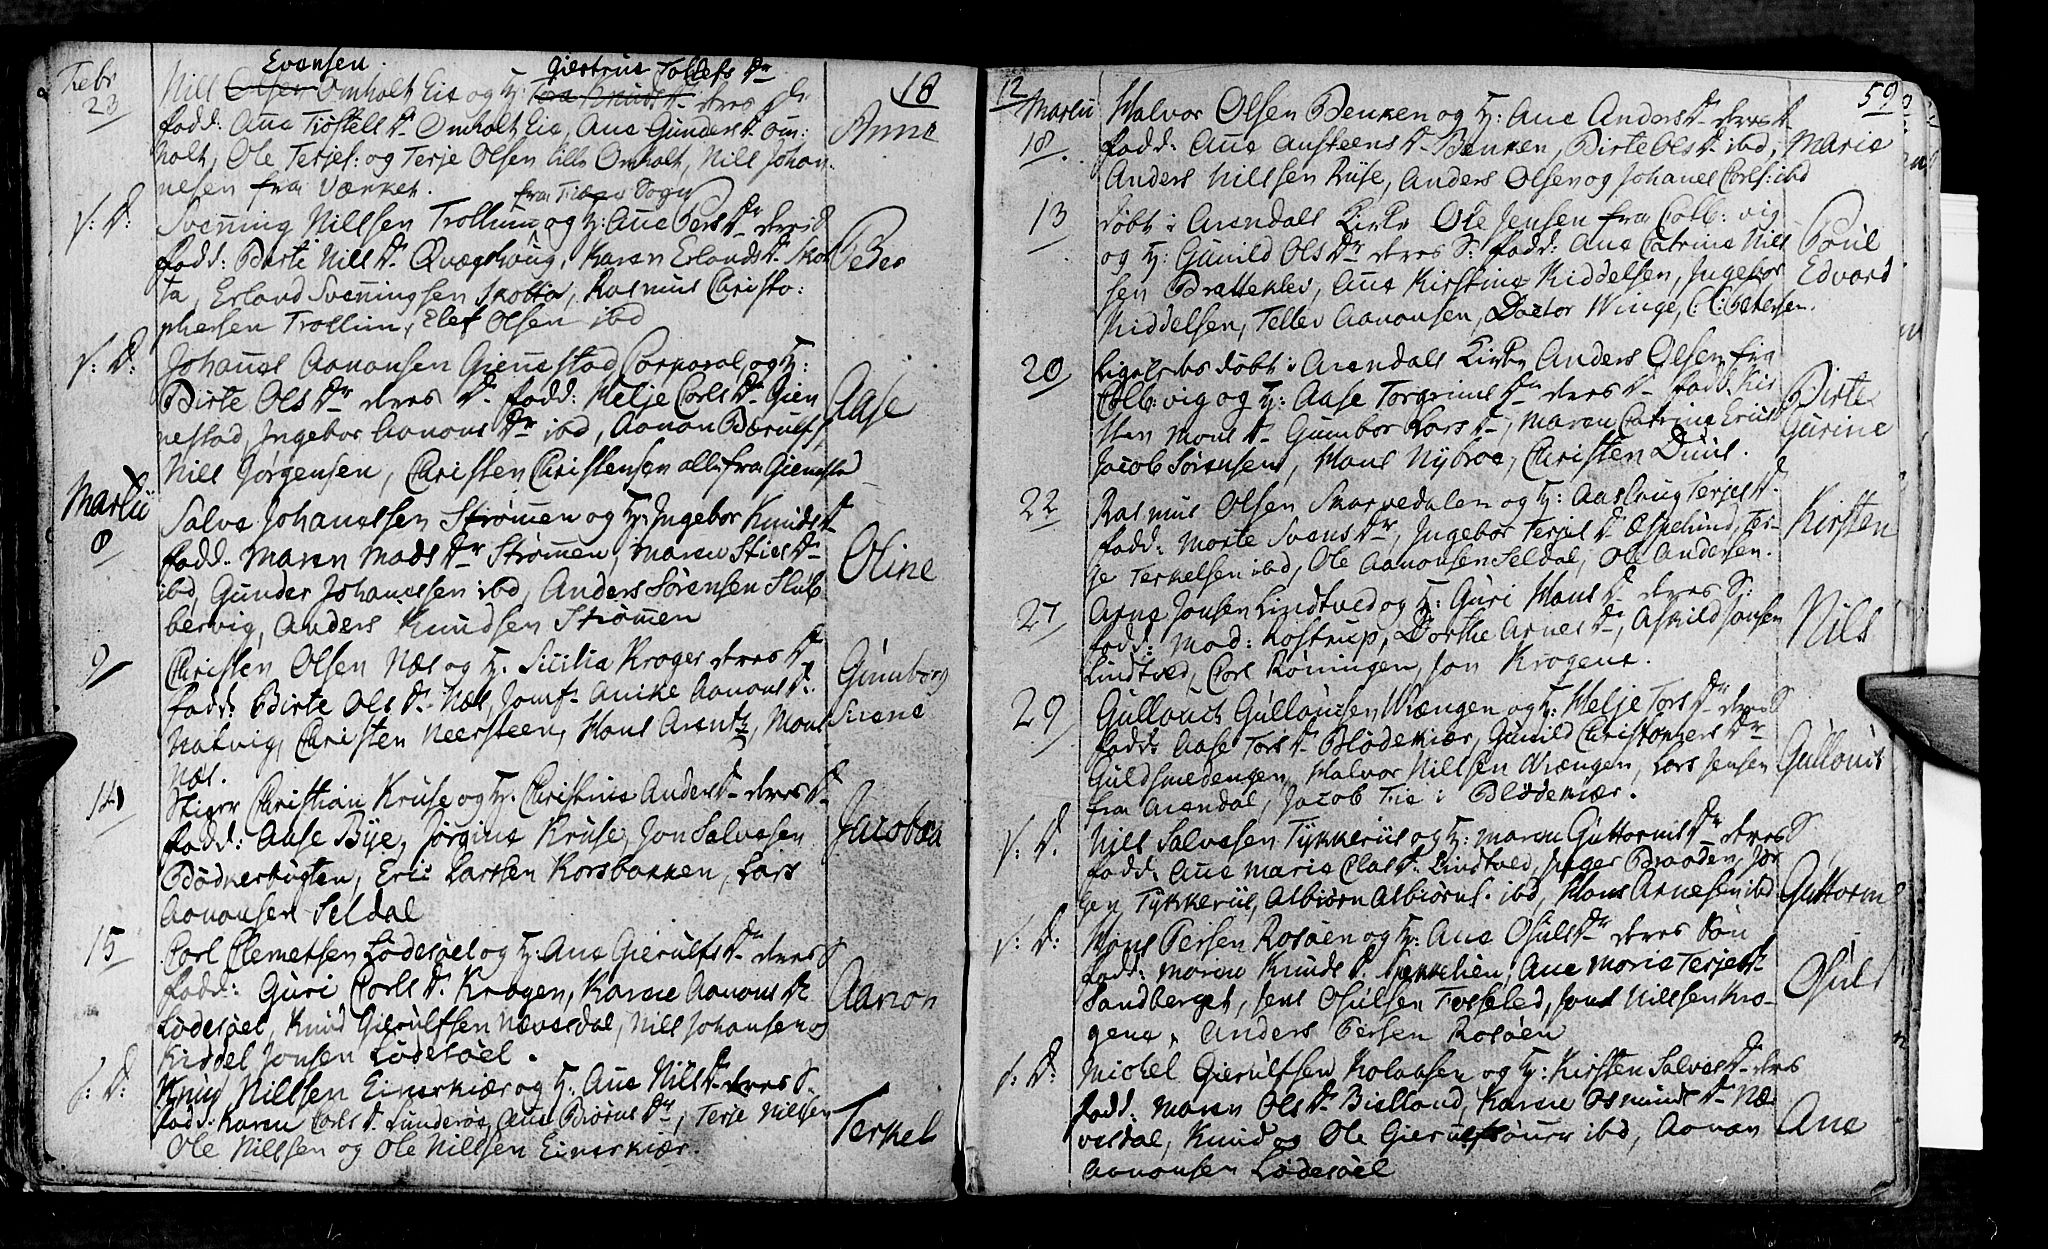 Febr
23
Evensen. Giertrue Tollefs Dr
Nills Olsen Omholt Eie og H: Tora Knuds Dr deres Dr
fadd: Ane Tröstells Dr Omholt Eie, Ane Gunders Dr Om:
holt, Ole Terjes: og Terje Olsen lille Omholt, Nills Johan-
nesen fra Værket.
Anne
18
S: D:
fra Sogn
Svenning Nillsen Trollum og H: Ane Pers Dr deres S
fadd: Berte Nills Dr Qvagshoug, Karen Erlands Dr Skot
ta, Erland Svenningsen Skotta, Rasmus Christo:
phersen Trollum, Elef Olsen ibd
Peder
S: D:
Johanes Aanonsen Gienestad Corporal, og H:
Birte Ols Dr deres Dr fadd: Helje Carls Dr Gien
nestad, Ingebor Aanons Dr ibd, Aanon Berulfs,
Nills Jörgensen, Christen Christensen alle fra Gienestad
Aase
Martii
8
Salve Johanessen Strömen og H: Ingebor Knuds Dr
fadd: Maren Mads Dr Strömen, Maren Sties Dr
ibd, Gunder Johanessen ibd, Anders Sörensen Slub
bervig, Anders Knudsen Strömen
Oline
9
Christen Olsen Næs og H. Sicilia Kroger deres Dr
fadd: Birte Ols Dr Næs, Jomf. Anike Aanons Dr
Natvig, Christen Neersteen, Hans Arentz, Mons
Næs.
Gunborg
Sirene
14
Stiger Christian Kruse og H. Christine Anders Dr deres Dr
fadd: Aase Bye, Jörgine Kruse, Jon Salvesen
Bödkerhugten, Eric Larssen Korsbakken, Lars
Aanonsen Seldal
Jacobæa
15
Carl Clemetsen Lödesöel og H: Ane Gierulfs Dr deres S
fadd: Guri Carls Dr Krogen, Karen Aanons Dr
Lödesöel, Knud Gierulfsen Nævesdal, Nills Johansen og
Kiddel Jonsen Lödesöel.
Aanon
S: D:
Knud Nillsen Einerkiær og H. Ane Nills Dr deres S.
fadd. Karen Carls Dr Lunderöe, Ane Biörns Dr, Terje Nillsen
Ole Nillsen og Ole Nillsen Einerkiær.
Terkel
12
59
Martii
18.
Halvor Olsen Benken og H: Ane Anders Dr deres Dr
fadd: Ane Austeens Dr Benken, Birte Ols Dr ibd,
Anders Nillsen Riise, Anders Olsen og Johanes Carls: ibd
Marie
13
döbt i Arendalls Kirke Ole Jensen fra Colb: vig
og H: Gunild Ols Dr deres S: fadd: Ane Catrine Nill
sen Bratteklev, Ane Kirstine Kiddelsen, Ingebor
Kiddelsen, Tellev Aanonsen, Doctor Winge, C: C: Petersen.
Poul
Edvard
20
Ligeledes döbt i Arendalls Kirke Anders Olsen fra
Colb: vig og H: Aase Torgrims Dr deres Dr fadd: Kir
sten Mons Dr Gumbor Lars Dr, Maren Catrine Erics
Jacob Sörensen, Hans Nybroe, Christen Duus.
Birte
Gurine
22
Rasmus Olsen Skarvedalen og H: Aaslaug Terjes Dr.
fadd: Marte Svens Dr, Ingebor Terjes Dr Espelund, Ter-
ge Terkelsen ibd, Ole Aanonsen Seldal, Ole Andersen.
Kirsten
27
Arne Jonsen Lindtved og H: Guri Hans Dr deres S:
fadd: Mad: Rostrup, Dorthe Arnes Dr, Askild Jonsen
Lindtved, Carl Röningen, Jon Krogene.
Nils
29
Gullouch Gullouchsen Wrengen og H: Helje Tors Dr deres S
fadd: Aase Tors Dr Blödekiær, Gunild Christophers Dr
Guldsmedengen, Halvor Nillsen Wrengen, Lars Jensen
fra Arendal, Jacob Tie i Blödekiær.
Gullouch
S: D.
Nills Salvesen Tykkeriis og H: Maren Guttorms Dr deres S
fadd: Ane Marie Clas Dr Lindtved, Inger Braaden, Jör
gen Tykkeriis, Albiörn Albiörns. ibd, Hans Arnesen ibd
Guttorm
S: D:
Mons Persen Rosöen og H: Ane Osuls Dr deres Sön
fadd: Maren Knuds Dr, Ane Marie Terjes Dr
Sandberget, Jens Osulsen Fosseled, Jens Nillsen Kro-
gene, Anders Persen Rosöen
Osul
S: D:
Michel Gierulfsen Kolaasen og H: Kirsten Salves Dr deres
fadd: Maren Ols Dr Bielland, Karen Osmunds Dr Næ-
vesdal, Knud og Ole Gierulfsönner ibd, Aanon
Aanonsen Lödesöel
Ane